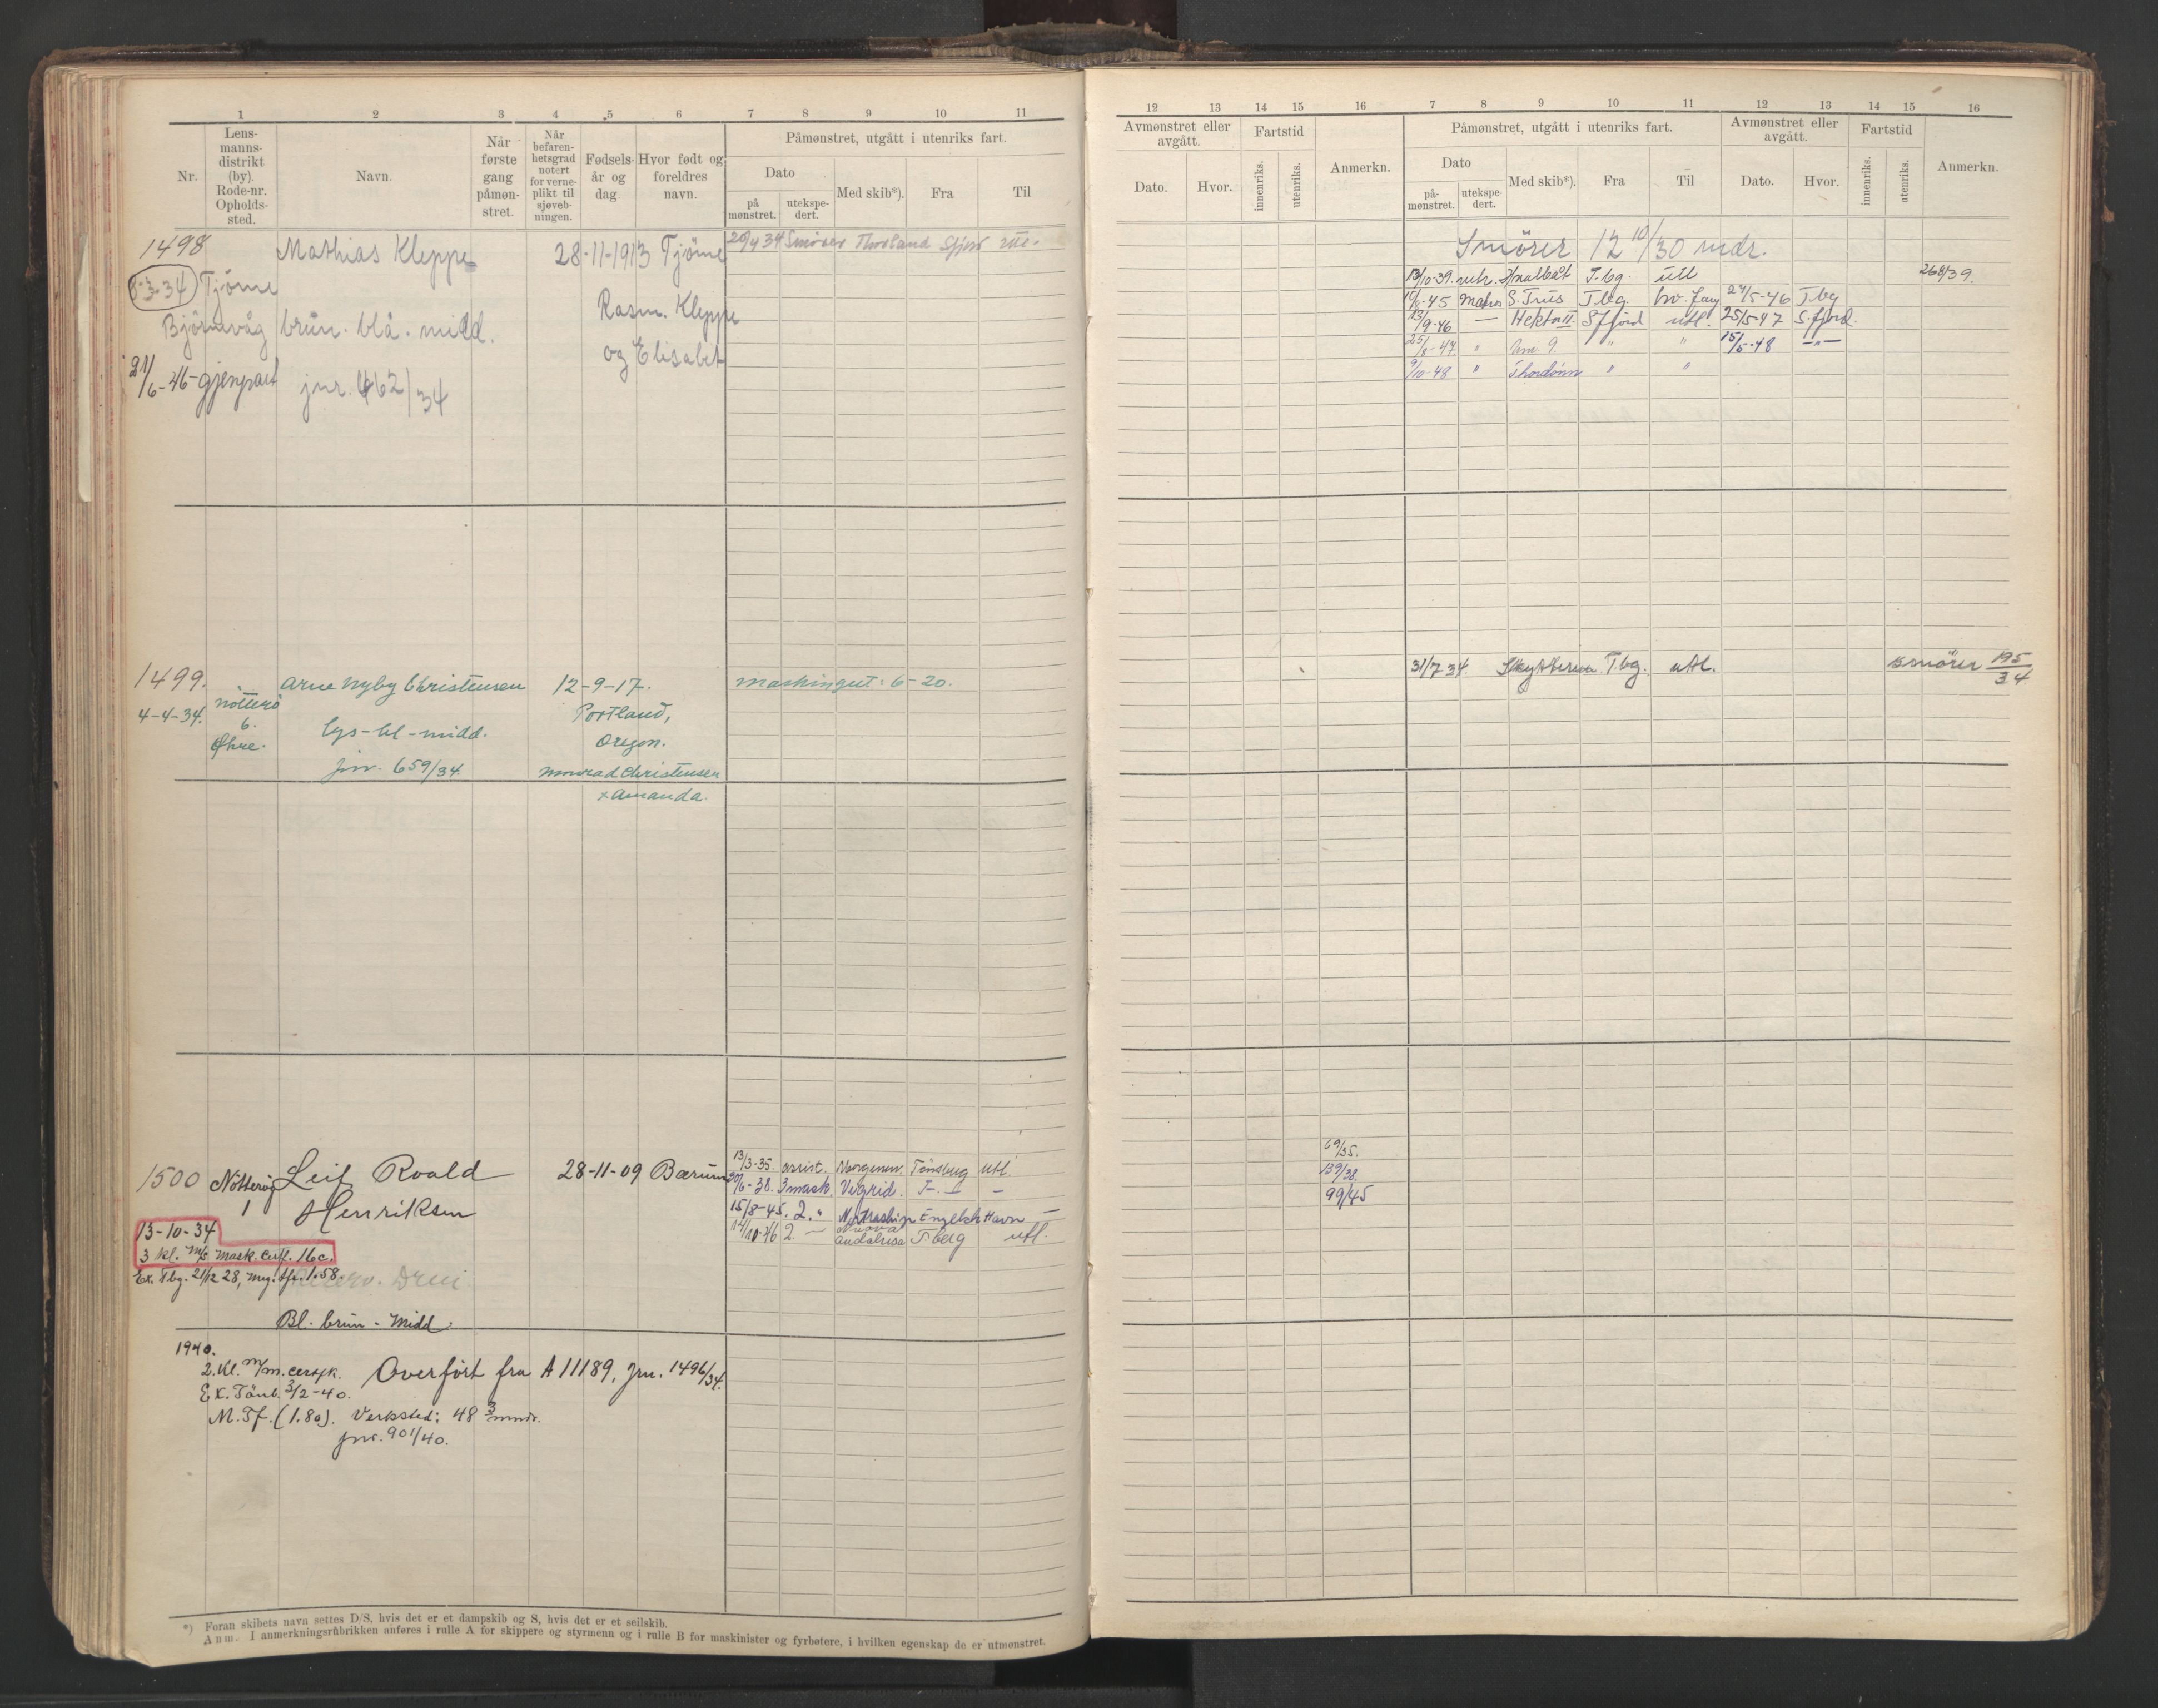 1 2 3 4 5 6 7 8 9 10 11
Nr.
Lens-
manns-
distrikt
(by).
Rode-nr.
Opholds-
sted.
Navn.
Når
første
gang
påmøn-
stret.
Når
befaren-
hetsgrad
notert
for verne-
plikt til
sjøveb-
ningen.
Fødsels-
år og
dag
Hvor født og
foreldres
navn.
Påmønstret, utgått i utenriks fart.
Dato
på
mønstret.
utekspe-
dert.
Med skib*).
Fra
Til
1498 Mathias Kleppe 28-11-1913 Tjöme 20/4 34 Smører Thorland Sfjord
8-3-34 Tjöme
Rasm. Kleppe
brun. blå. midd.
og Elisabet
21/6-46 gjenpart jnr. 462/34
1499. Arne Nyby Christensen 12-9-17. maskingut: 6-20.
4-4-34. Nötterö
6. Portland,
lys-bl-midd. Oregon.
jnr. 659/34 Monrad Christensen
+ Amanda.
1500 Nötterøy Leif Roald 28-11-09 Bærum 13/3-35. assist. Tönsberg utl.
1 Henriksen
20/6-38. 3 mask. Vigrid. T- - -
15/8-45. 2. " Engelsk Havn -
14/10-46 2 - Andalusa T.berg utl.
13-10-34
3 kl. m/s mask. cert. 16c.
Ex. Tbg. 21/12 28,
Bl. brun - Midd.
1940.
2. Kl. m/m. certfk. Overfört fra A 11189, jnr. 1496/34.
Ex. Tönb. 3/2-40.
M. Tf. (1.80). Verksted: 48 3/ mndr.
jnr. 901/40.
*) Foran skibets navn settes D/S, hvis det er et dampskib og S, hvis det er et seilskib.
Anm. I anmerkningsrubrikken anføres i rulle A for skippere og styrmenn og i rulle B for maskinister og fyrbøtere, i hvilken egenskap de er utmønstret.
12 13 14 15 16 7 8 9 10 11 12 13 14 15 16
Avmønstret eller
avgått.
Dato.
Hvor.
Fartstid
innenriks.
utenriks.
Anmerkn.
Påmønstret, utgått i utenriks fart.
Dato
på-
mønstret.
utekspe-
dert.
Med skib*).
Fra
Til
Avmønstret eller
avgått.
Dato.
Hvor.
Fartstid
innenriks.
utenriks.
Anmerkn.
Smörer 12 10/30 mdr.
13/10-39. Hvalbåt T.bg. utl 268/39.
10/8-45 Matros T.bg. hv. fang 24/5-46 T.bg
13/9-46 — Hektor II Sfjord utl. 25/5-47 S.fjord.
25/8-47 " Une 9 " " 15/5-48 —"—
9/10-48 " Thordönn " "
31/7 34. Skytteren T.bg. utl. smörer 195/34
69/35.
139/38.
99/45